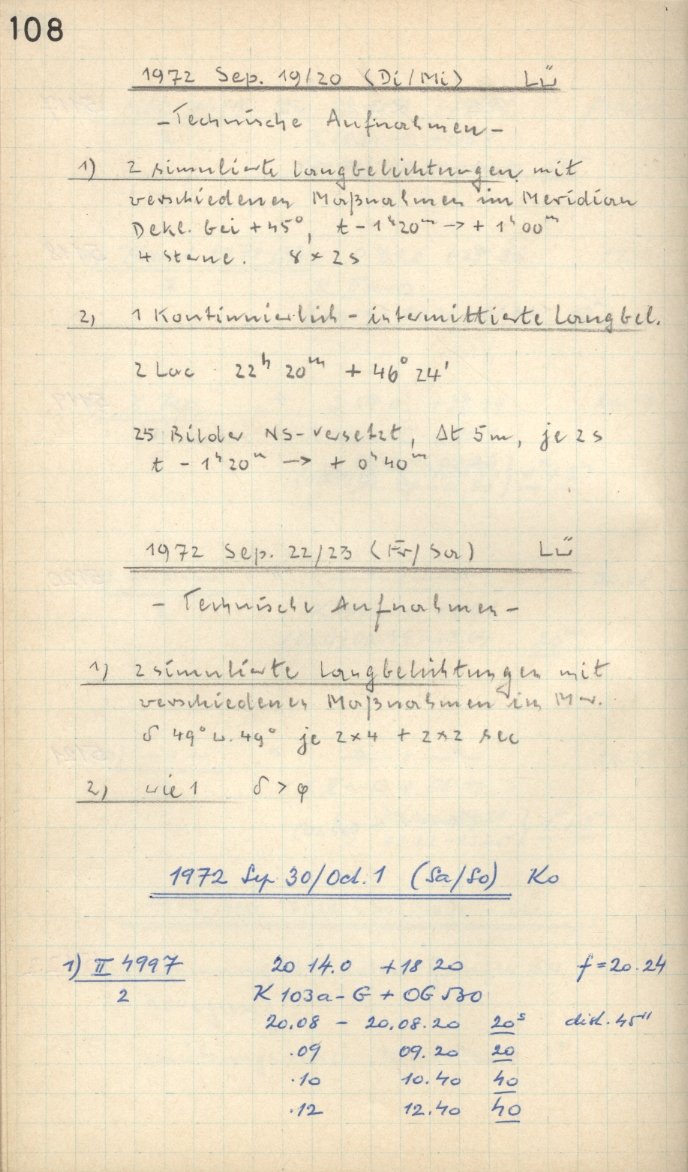 108
1972 Sep. 19/20 (Di/Mi) Lü
- Technische Aufnahmen -
1) 2 simulierte Langbelichtungen mit
verschiedenen Maßnahmen im Meridian
Dekl. bei +45°, t - 1ʰ20ᵐ -> + 1ʰ00ᵐ
4 Sterne. 8 × 2s
2) 1 Kontinuierlich - intermittierte Langbel.
2 Lac 22ʰ 20ᵐ + 46° 24'
25 Bilder NS-versetzt, Δt 5m, je 2s
t - 1ʰ20ᵐ -> + 0ʰ40ᵐ
1972 Sep. 22/23 (Fr/Sa) Lü
- Technische Aufnahmen -
1) 2 simulierte Langbelichtungen mit
verschiedenen Maßnahmen im Mer.
δ 49° u. 49° je 2×4 + 2×2 sec
2) wie 1 δ > φ
1972 Sep 30/Oct. 1 (Sa/So) Ko
1) II 4997 20 14.0 +18 20 f = 20.24
2 K 103a-G + OG 530
20.08 - 20.08.20 20ˢ dist. 45"
.09 09.20 20
.10 10.40 40
.12 12.40 40